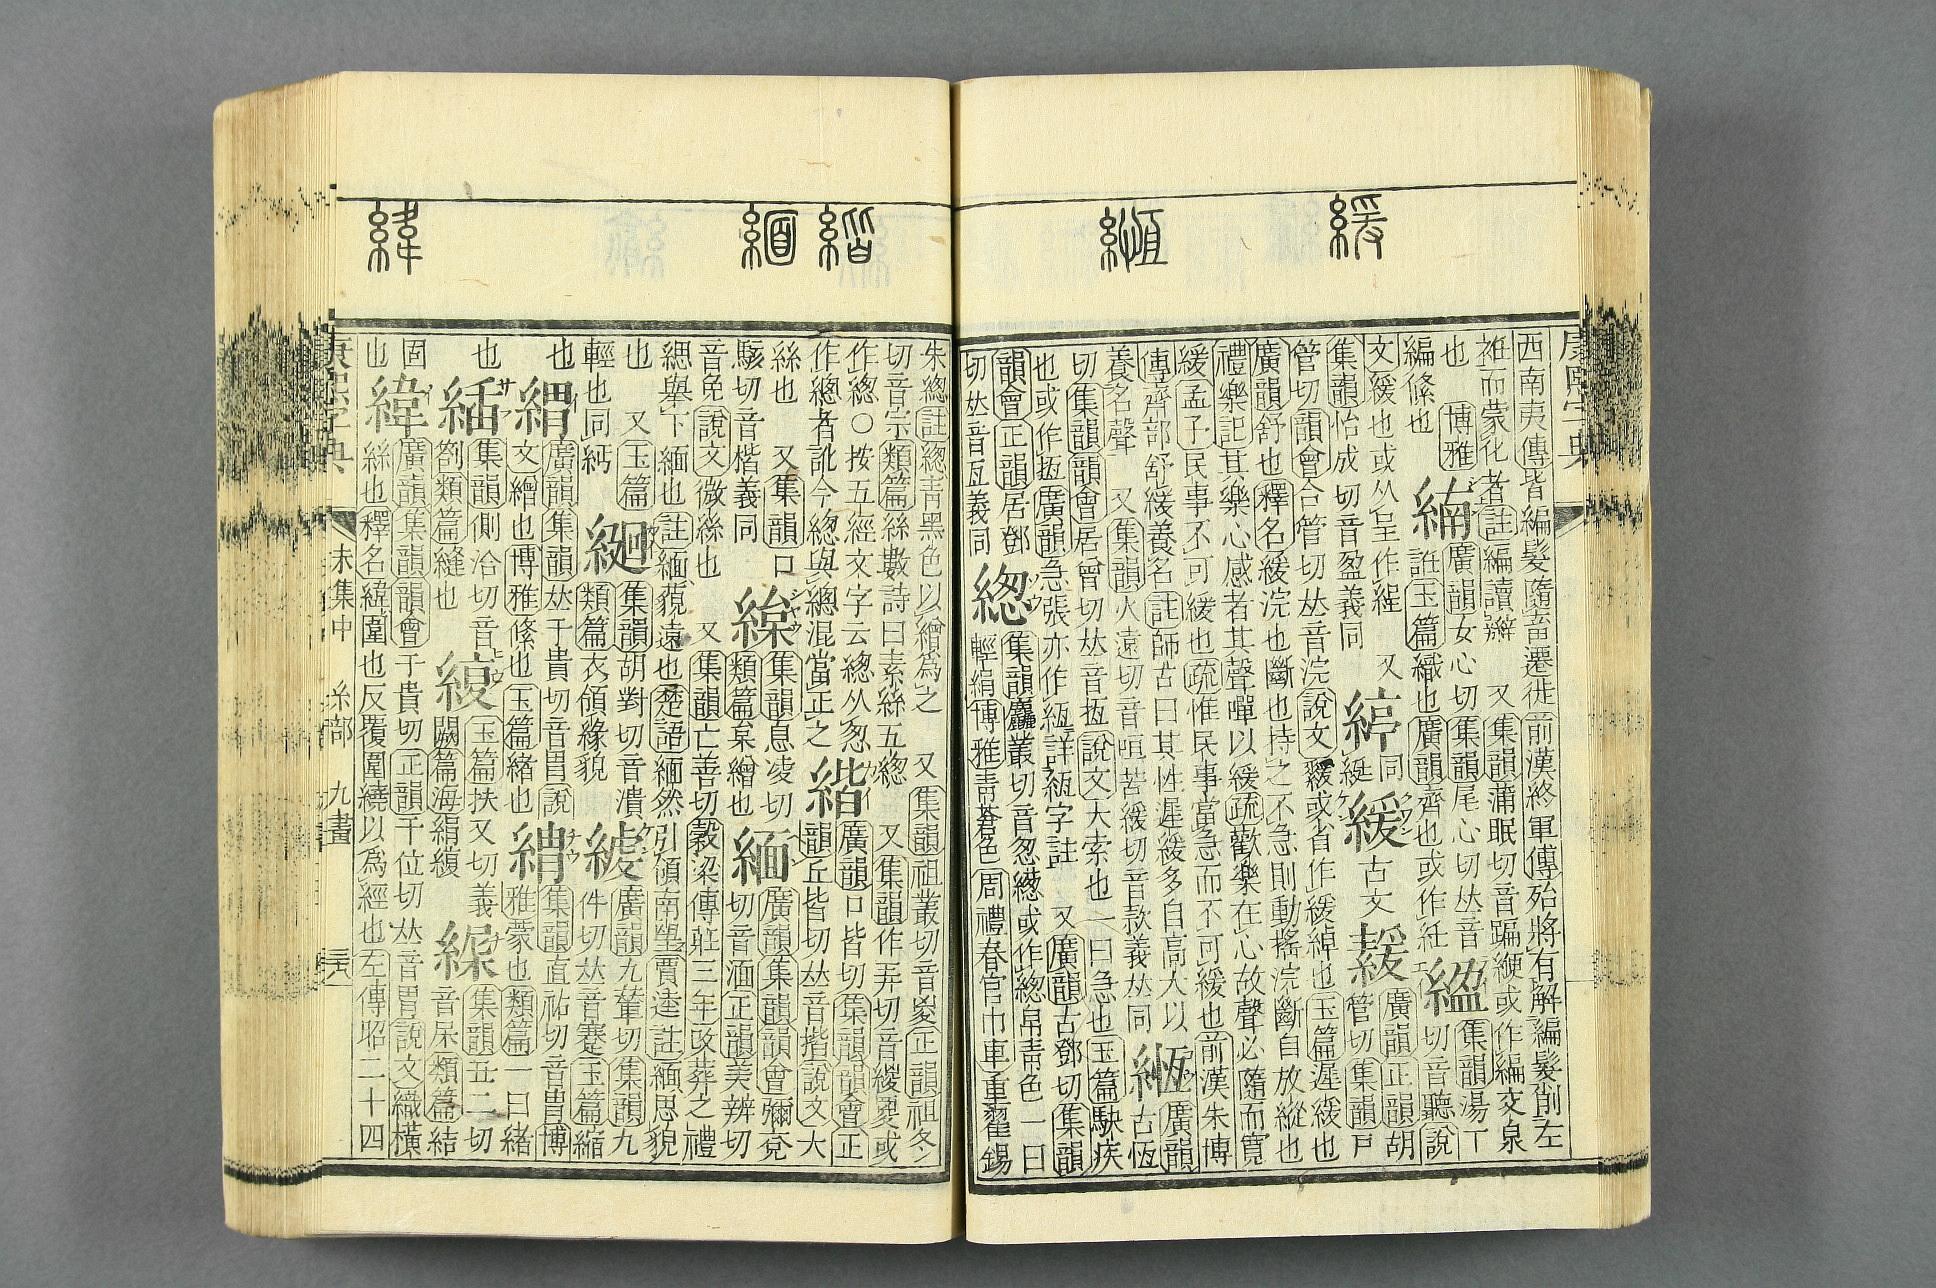 緩
緪
緇
緬
緯
康熙字典
西南夷傳皆編髮隨畜遷徙前漢終軍傳殆將有解編髮削左
衽而蒙化者註編讀辮 又集韻蒲眠切音蹁緶或作編 交枲
也 博雅
編絛也
廣韻女心切集韻尼心切𠀤音
誑玉篇織也廣韻齊也或作紝
䋼
集韻湯丁
切音聽說
文緩也或从呈作䋫 又
集韻怡成切音盈義同
同
綎
緩
古文
廣韻正韻胡
管切集韻戸
管切韻會合管切𠀤音浣說文 或省作緩綽也玉篇遲緩也
廣韻舒也釋名緩浣也斷也持之不急則動搖浣斷自放縱也
禮樂記其樂心感者其聲嘽以緩疏歡樂在心故聲必隨而寬
緩孟子民事不可緩也疏惟民事當急而不可緩也前漢朱博
傳齊部舒緩養名註師古曰其性遲緩多自高大以
養名聲 又集韻火遠切音暅苦緩切音款義𠀤同
緪
廣韻
古恆
切集韻韻會居曾切𠀤音搄說文大索也一曰急也玉篇駃疾
也或作搄廣韻急張亦作絚詳絚字註 又廣韻古鄧切集韻
韻會正韻居鄧
切𠀤音亙義同
緫
集韻麤叢切音怱繱或作緫帛靑色一曰
輕絹博雅靑蒼色周禮春官巾車重翟錫
朱緫註緫靑黑色以繒爲之 又集韻祖叢切音㚇正韻祖冬
切音宗類篇絲數詩曰素絲五緫 又集韻作弄切音糉㚇或
作緫○按五經文字云緫从怱
作總者訛今緫與總混當正之
緒
廣韻口皆切集韻韻會正
韻丘皆切𠀤音揩說文大
絲也 又集韻口
駭切音楷義同
集韻息凌切
類篇某繒也
緬
廣韻集韻韻會彌兗
切音湎正韻美辨切
音免說文微絲也 又集韻亡善切穀梁傳莊三年改葬之禮
緦舉下緬也註緬藐遠也楚語緬然引領南望賈逵註緬思貌
也 又玉篇
輕也同絻
集韻胡對切音潰
類篇衣領緣貌
廣韻九輦切集韻九
件切𠀤音蹇玉篇縮
也
緭
廣韻集韻𠀤于貴切音胃說
文繒也博雅絛也玉篇緒也
集韻直祐切音胄博
雅蒙也類篇一曰緒
也
集韻側洽切音
劄類篇縫也
緮
玉篇扶又切義
闕篇海絹緮
緥
集韻五二切
音呆類篇結
固
也
緯
廣韻集韻韻會于貴切正韻于位切𠀤音胃說文織橫
絲也釋名緯圍也反覆圍繞以爲經也左傳昭二十四
康熙字典 未集中 糸部 九畫